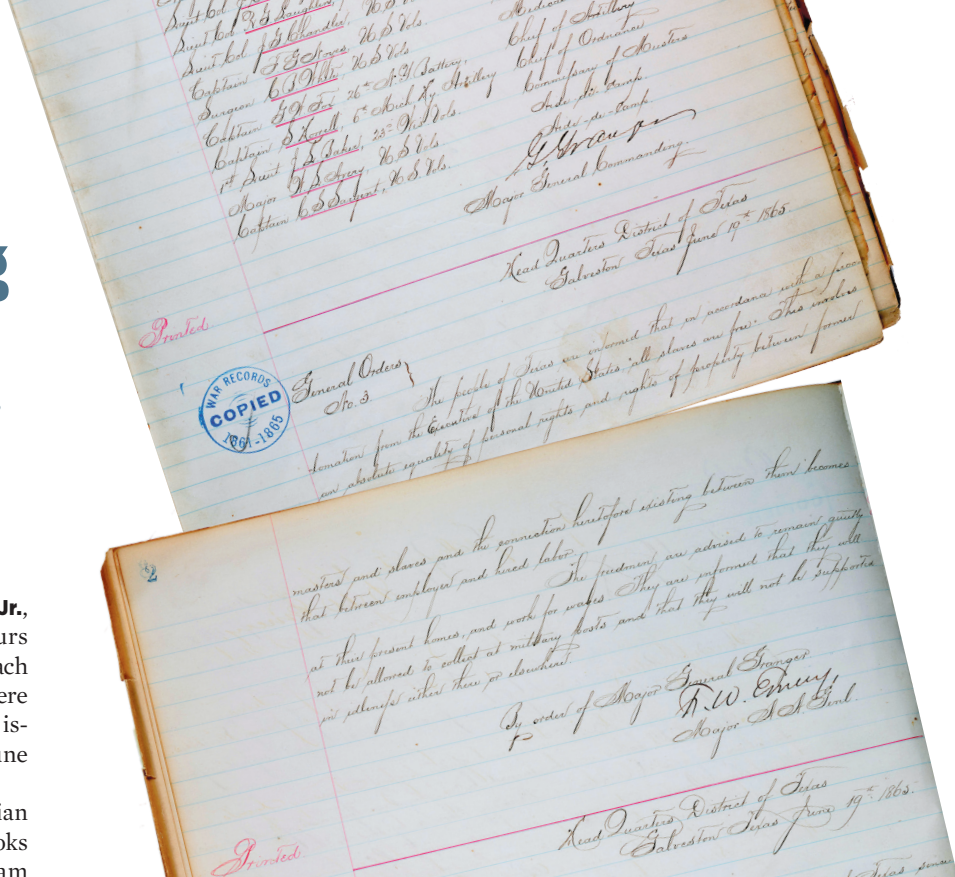 Lieut Col
Lieut Col J G Chandler, U.S. Vols
Captain F G Noyes, U S Vols
Surgeon C B White U S Vols
Captain G W Fox 26th N.Y. Battery, Chief of Artillery
Captain S Howell, 6th Mich Hy Artillery Chief of Ordnance
1st Lieut J L Baker, 23d Wis Vols. Commissary of Musters
Major U.S. Vols. Aide-de-Camp.
Captain C S Sargent, U.S. Vols. Aide-de-Camp.
G. Granger
Major General Commanding.
Head Quarters District of Texas
Galveston Texas June 19th 1865.
Printed
WAR RECORDS
COPIED
1861-1865
General Orders
No. 3
The people of Texas are informed that in accordance with a proc-
lamation from the Executive of the United States "all slaves are free." This involves
an absolute equality of personal rights and rights of property between former
2
masters and slaves and the connection heretofore existing between them becomes
that between employer and hired labor.
The freedmen are advised to remain quietly
at their present homes, and work for wages. They are informed that they will
not be allowed to collect at military posts and that they will not be supported
in idleness either there or elsewhere.
By order of Major General Granger
F. W. Emery,
Major A.A. Genl.
Printed.
Head Quarters District of Texas
Galveston Texas June 19th 1865.
Texas since
g
Jr.,
urs
ach
ere
is-
une
ian
oks
am